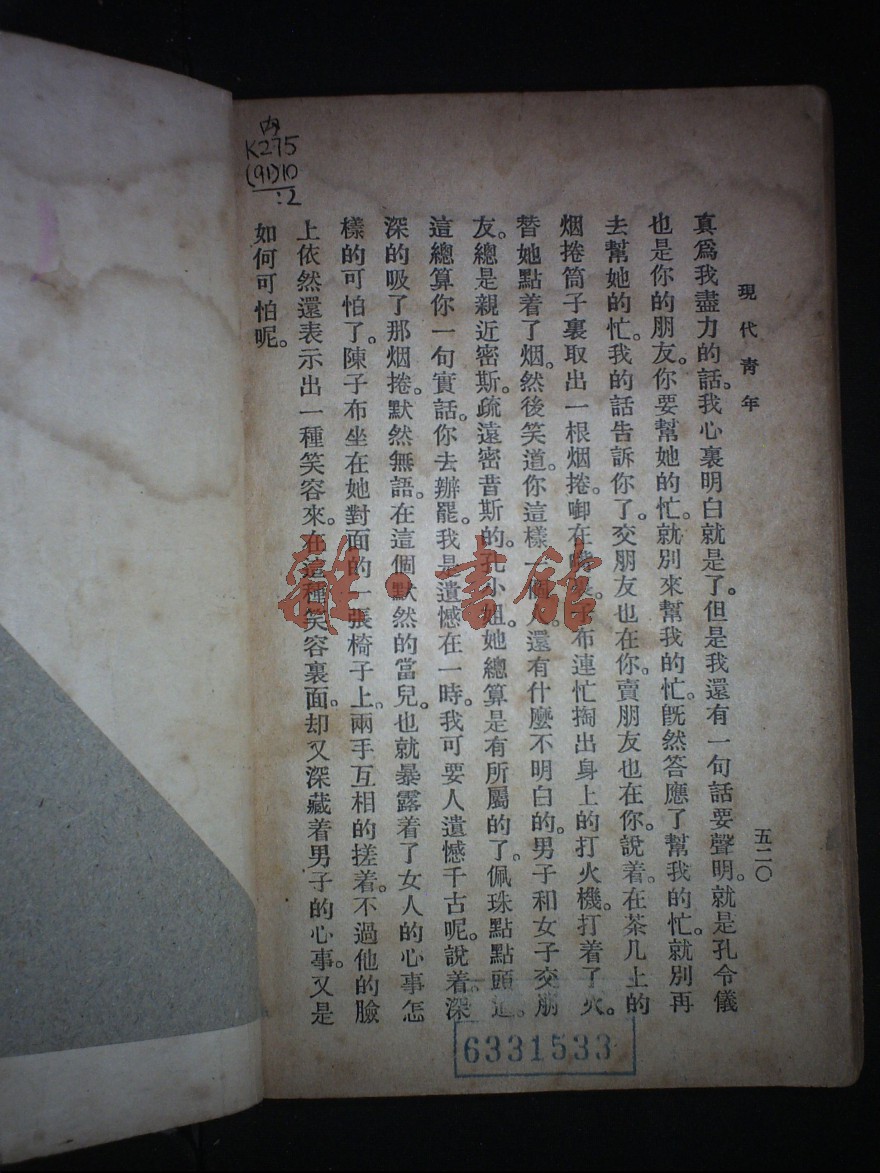 現代青年
五二〇
真爲我盡力的話。我心裏明白就是了。但是我還有一句話要聲明。就是孔令儀
也是你的朋友。你要幫她的忙。就別來幫我的忙。旣然答應了幫我的忙。就別再
去幫她的忙。我的話告訴你了。交朋友也在你。賣朋友也在你。說着。在茶几上的
烟捲筒子裏取出一根烟捲。啣在嘴裏。子布連忙掏出身上的打火機。打着了火。
替她點着了烟。然後笑道。你這樣一個人。還有什麼不明白的。男子和女子交朋
友。總是親近密斯。疏遠密昔斯的。孔小姐。她總算是有所屬的了。佩珠點點頭道。
這總算你一句實話。你去辦罷。我是遺憾在一時。我可要人遺憾千古呢。說着。深
深的吸了那烟捲。默然無語。在這個默然的當兒。也就暴露着了女人的心事怎
樣的可怕了。陳子布坐在她對面的一張椅子上。兩手互相的搓着。不過他的臉
上依然還表示出一種笑容來。在這種笑容裏面。却又深藏着男子的心事。又是
如何可怕呢。
K275
(91)10
:2
雜·書館
6331533